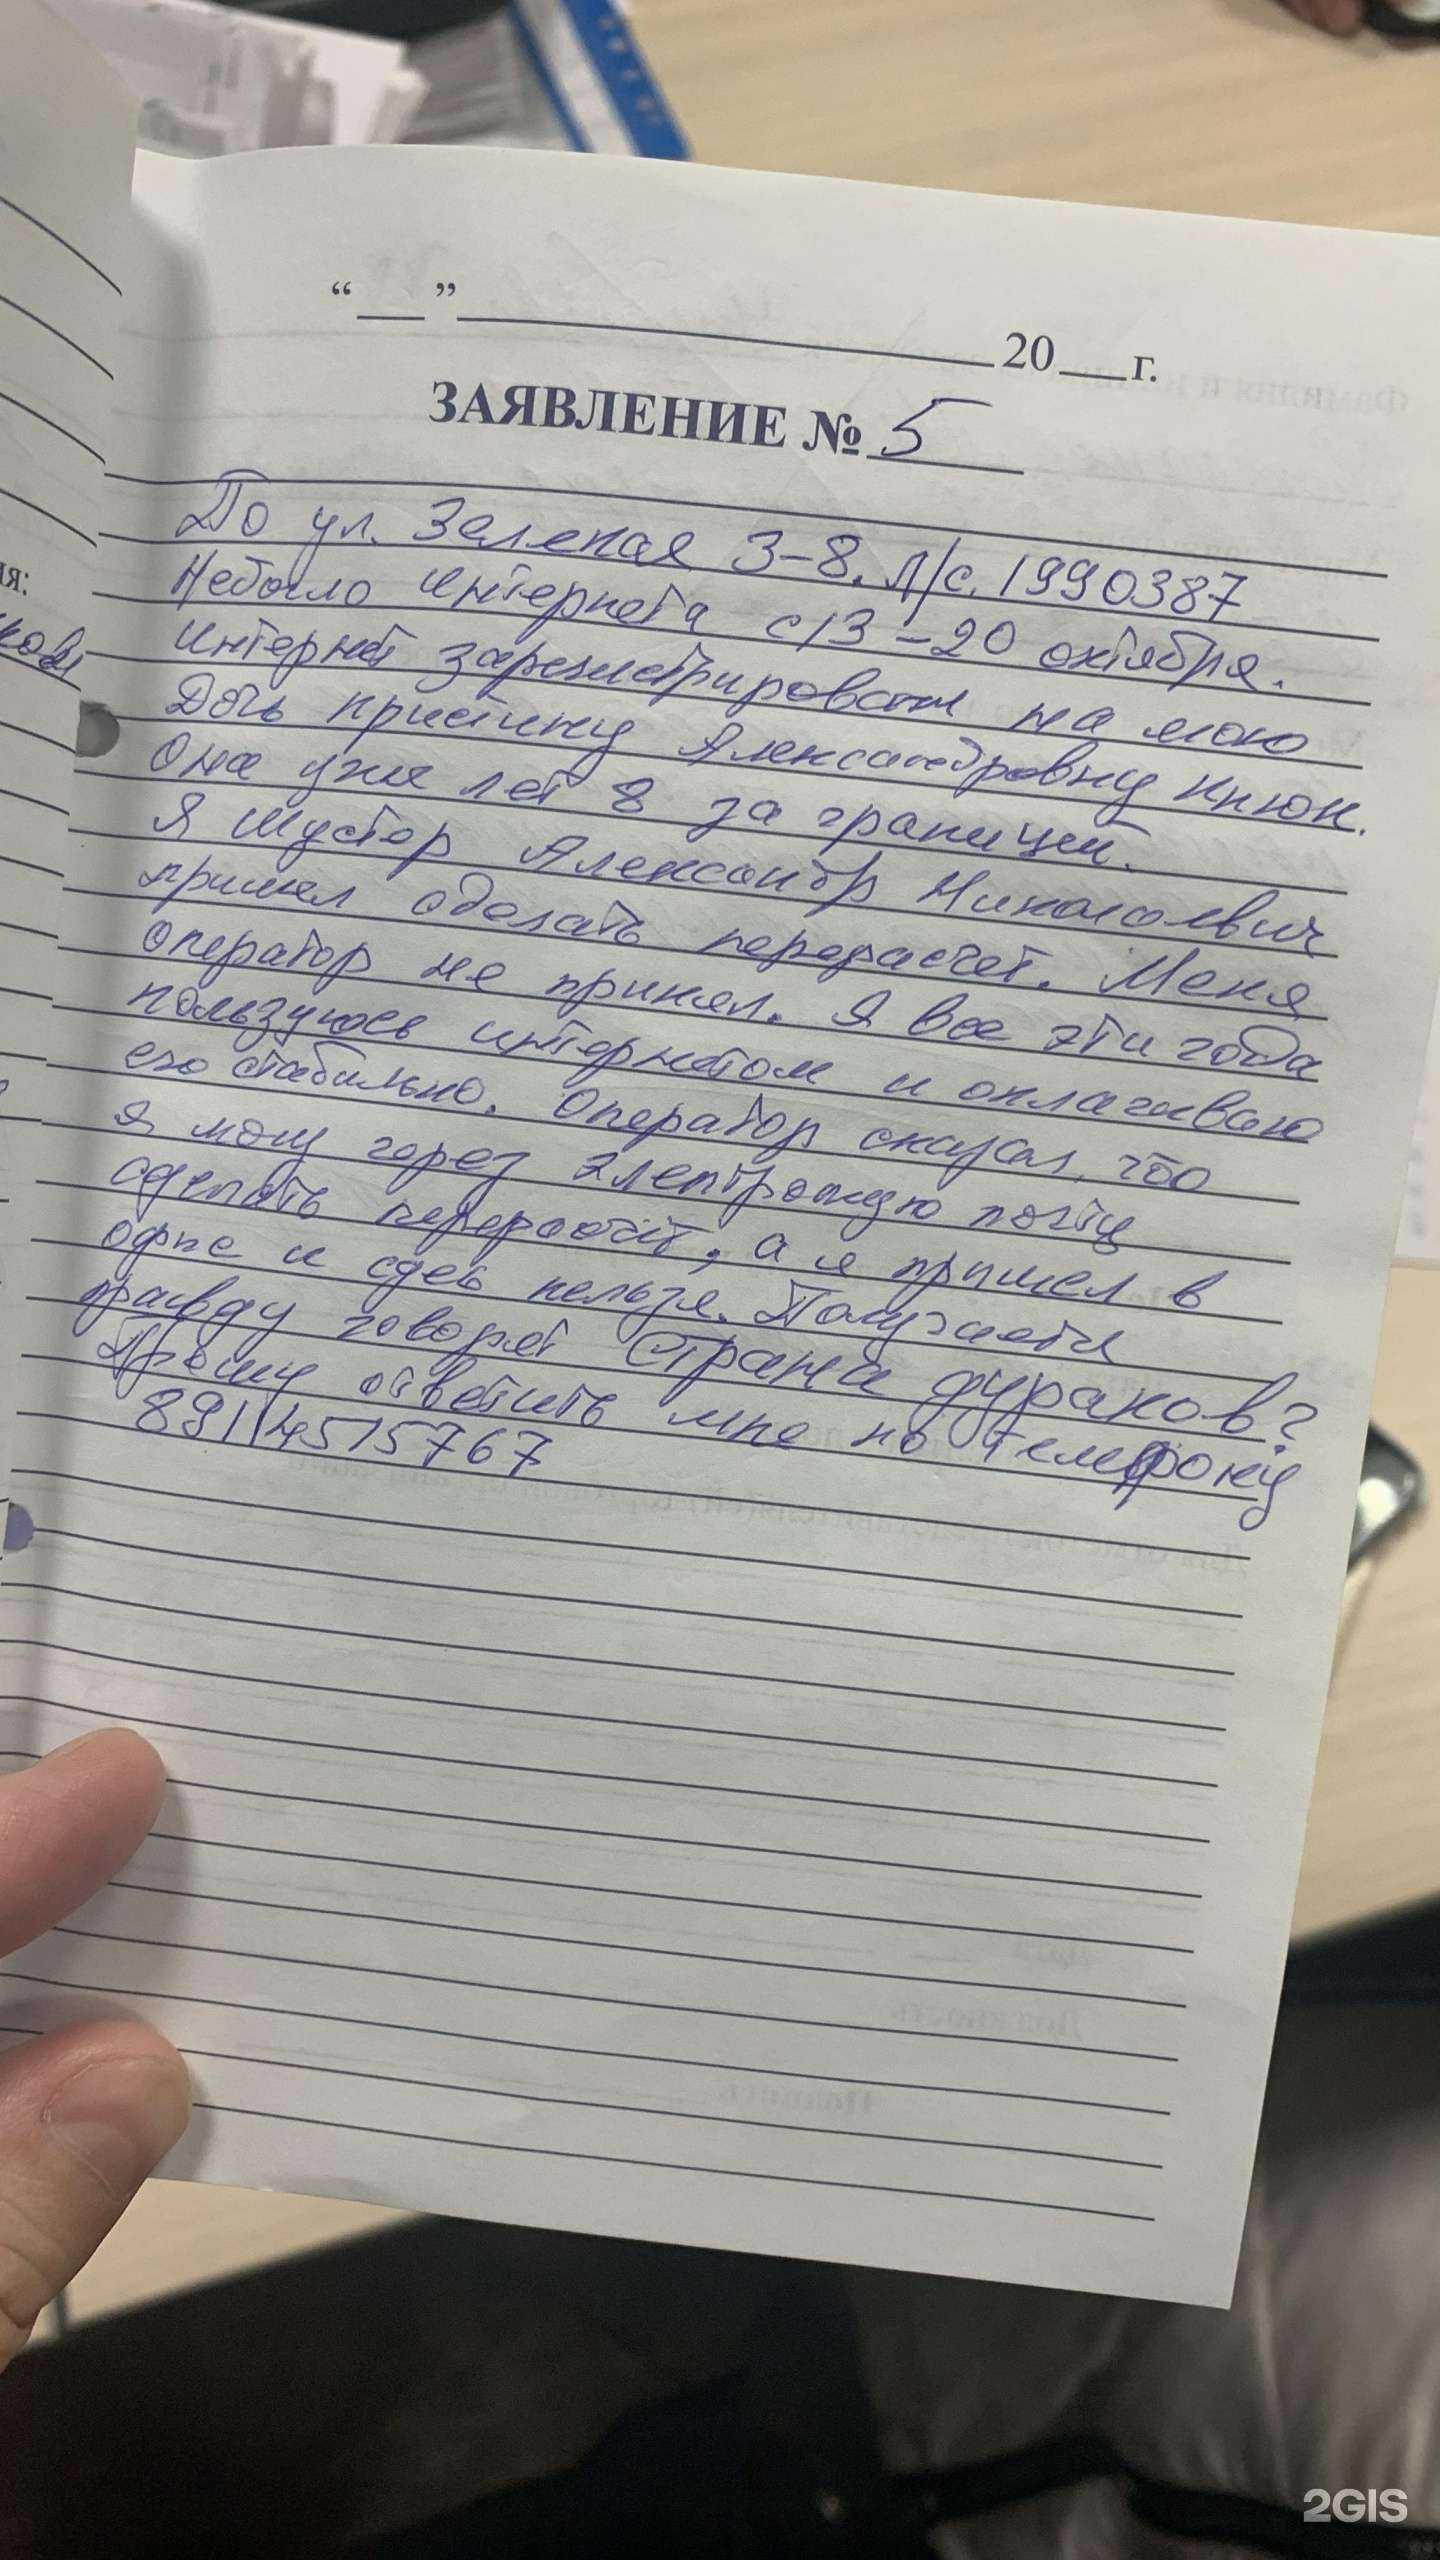 "__"____________________20___г.
ЗАЯВЛЕНИЕ № 5
По ул. Зеленая 3-8. Л/с. 1990387
Небыло Интернета с 13-20 октября.
Интернет зарегистрирован на мою
Дочь Кристину Александровну Кнюк.
Она уже лет 8 за границей.
Я Шустер Александр Николаевич
пришел сделать перерасчет. Меня
оператор не принял. Я все эти года
пользуюсь интернетом и оплачиваю
его стабильно. Оператор сказал, что
я могу через электронную почту
сделать перерасчет, а я пришел в
офис и сдесь нельзя. Получается
правду говорят Страна дураков?
Прошу ответить мне по телефону
89114515767
ия:
2GIS